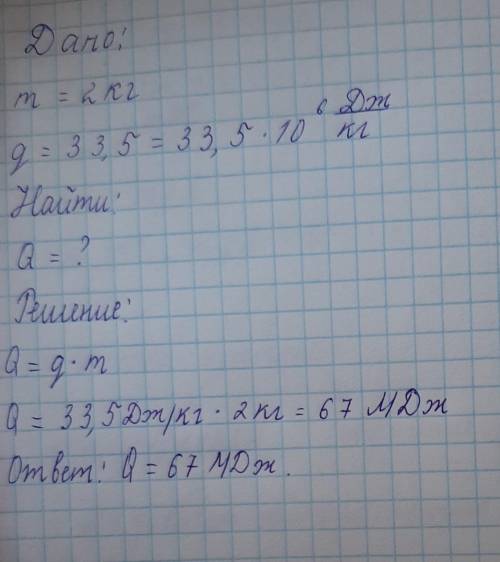 Дано:
m = 2 кг
q = 33,5 = 33,5 · 10⁶ Дж/кг
Найти:
Q = ?
Решение:
Q = q · m
Q = 33,5 Дж/кг · 2 кг = 67 МДж
Ответ: Q = 67 МДж.